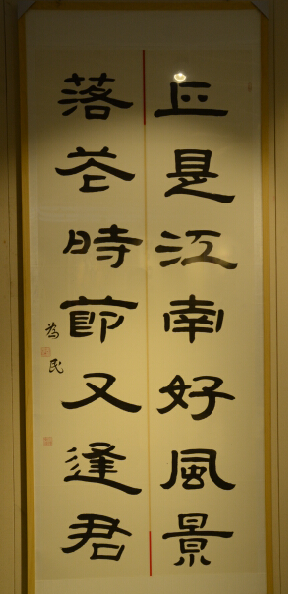 正是江南好風景
落花時節又逢君
為民